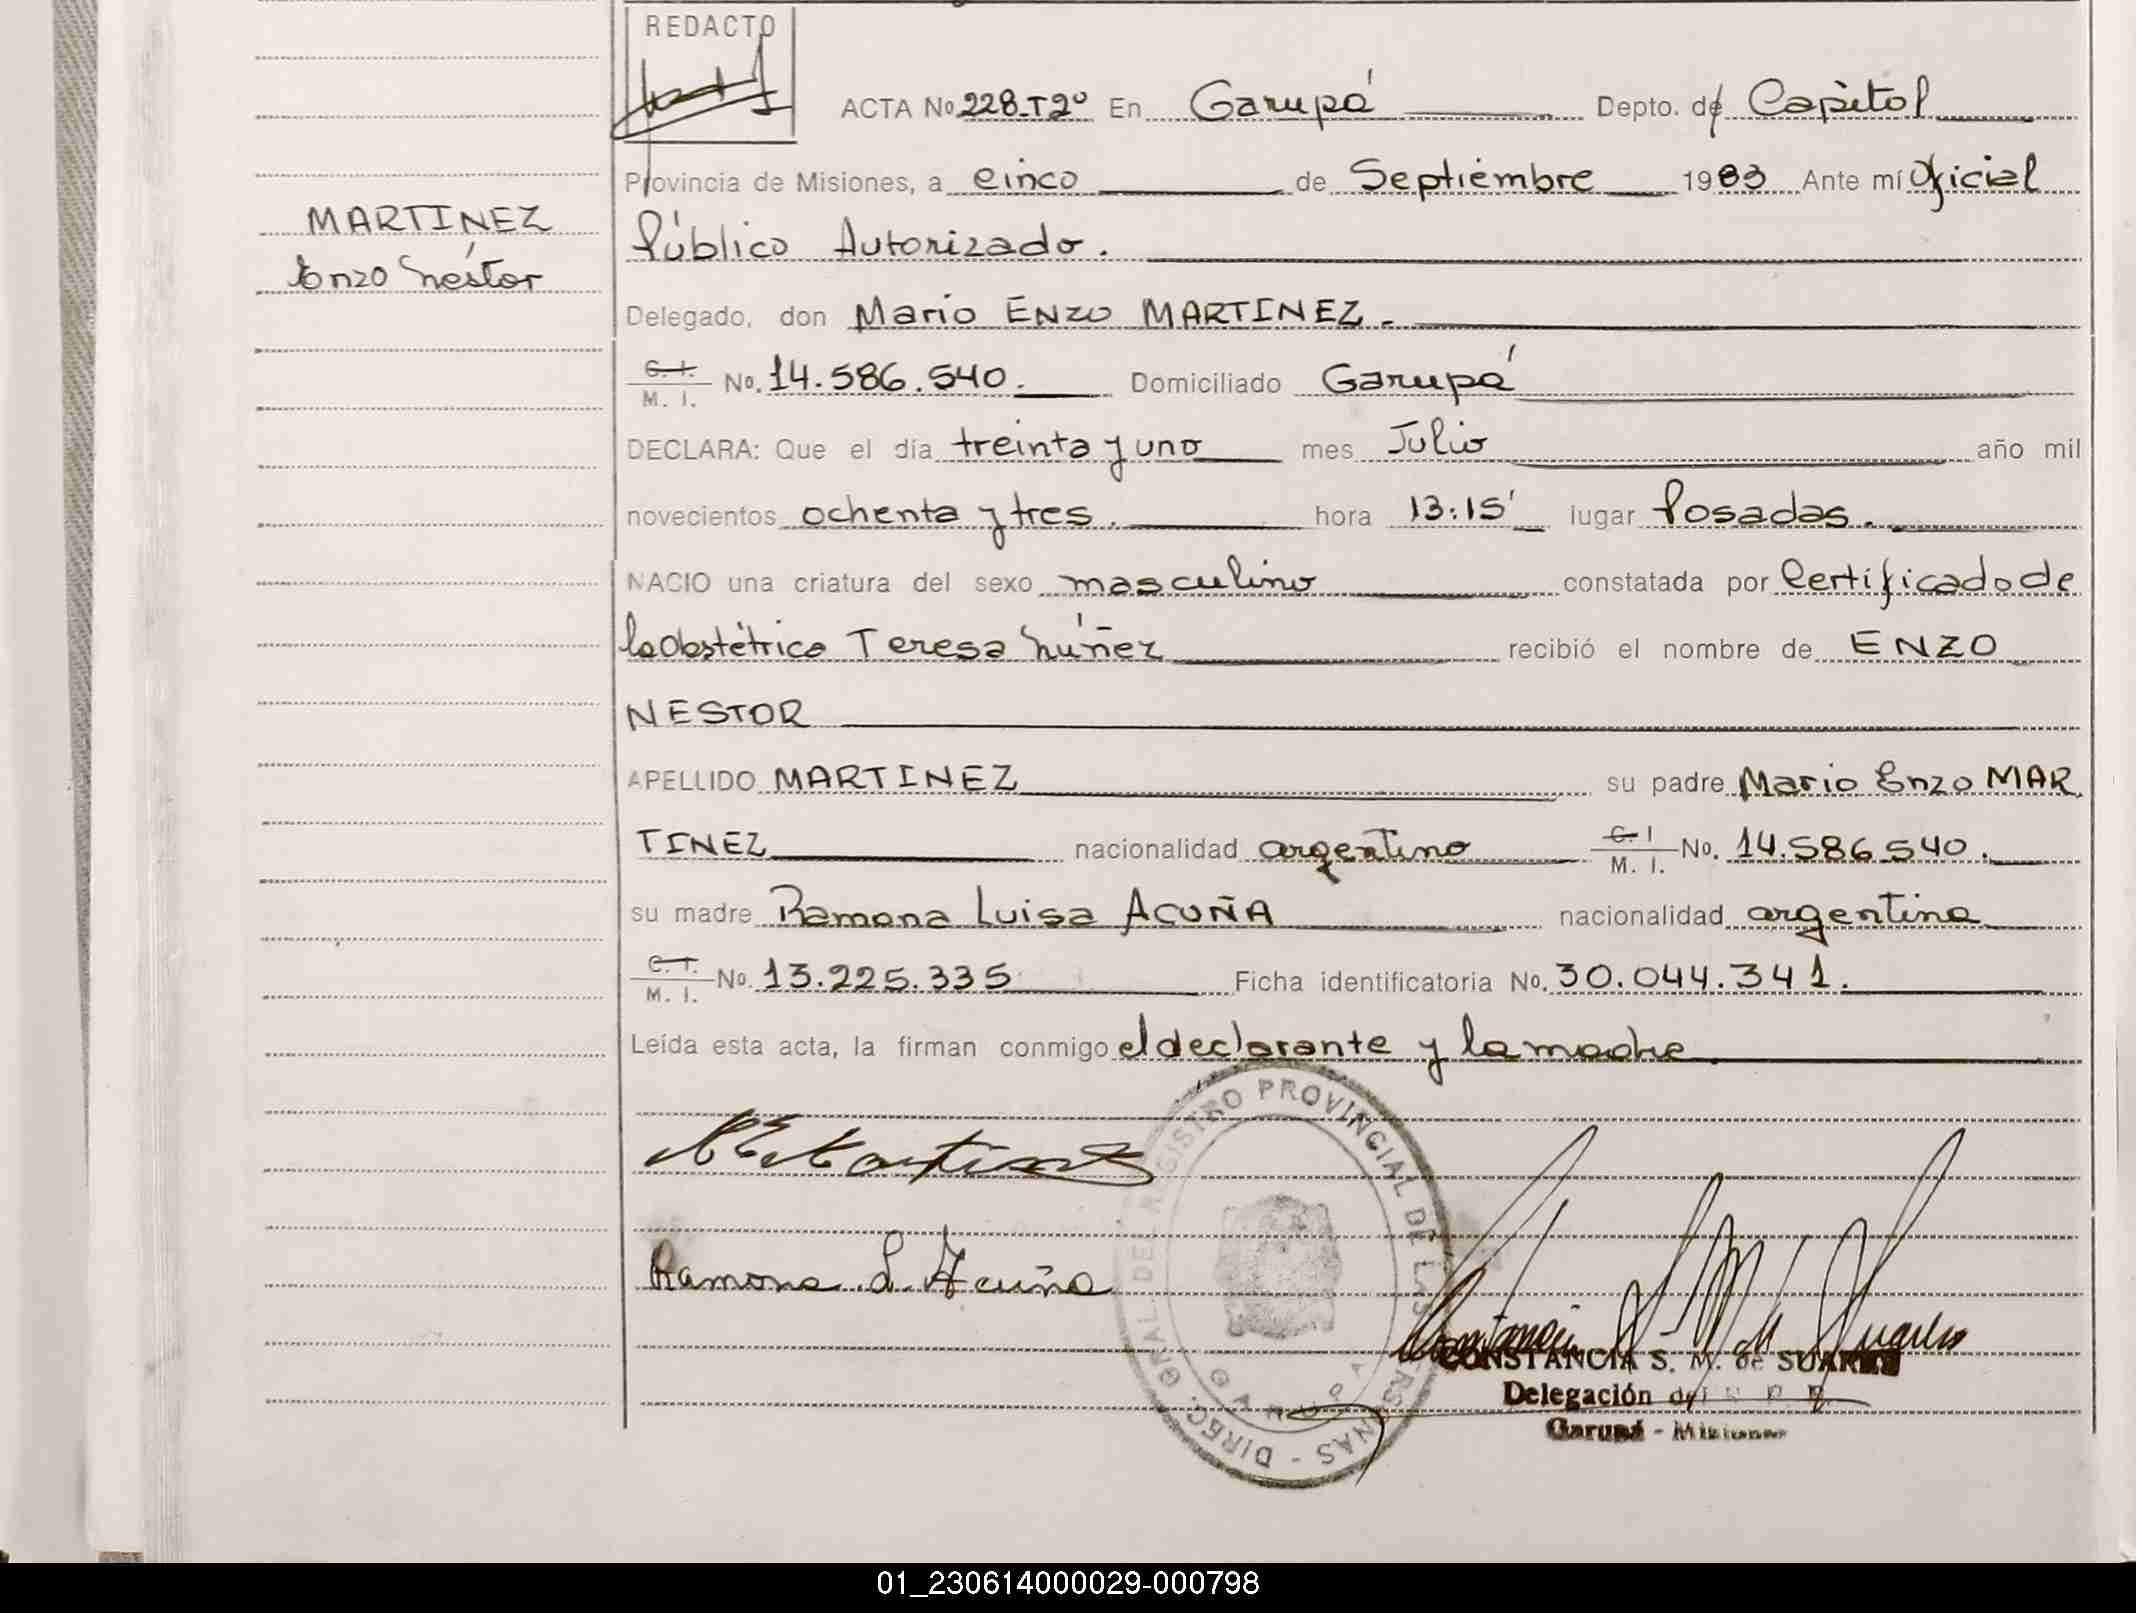 REDACTO
ACTA No. 228-T2º En Garupá Depto. de Capital
Provincia de Misiones, a cinco de Septiembre 1983 Ante mí Oficial
Público Autorizado.
MARTINEZ
Enzo Néstor
Delegado, don Mario ENZO MARTINEZ.-
C. I. / M. I. No. 14.586.540. Domiciliado Garupá
DECLARA: Que el día treinta y uno mes Julio año mil
novecientos ochenta y tres. hora 13:15' lugar Posadas.
NACIO una criatura del sexo masculino constatada por Certificado de
la Obstétrica Teresa Núñez recibió el nombre de ENZO
NESTOR
APELLIDO MARTINEZ su padre Mario Enzo MAR
TINEZ nacionalidad argentino C. I / M. I. No. 14.586.540.
su madre Ramona Luisa ACUÑA nacionalidad argentina
C. I. / M. I. No. 13.225.335 Ficha identificatoria No. 30.044.341.
Leída esta acta, la firman conmigo el declarante y la madre
M E Martinez
Ramona L. Acuña
DIREC. GRAL. DEL REGISTRO PROVINCIAL DE LAS PERSONAS - GARUPA
CONSTANCIA S. M. de SUAREZ
Delegación del
Garupá - Misiones
01_230614000029-000798